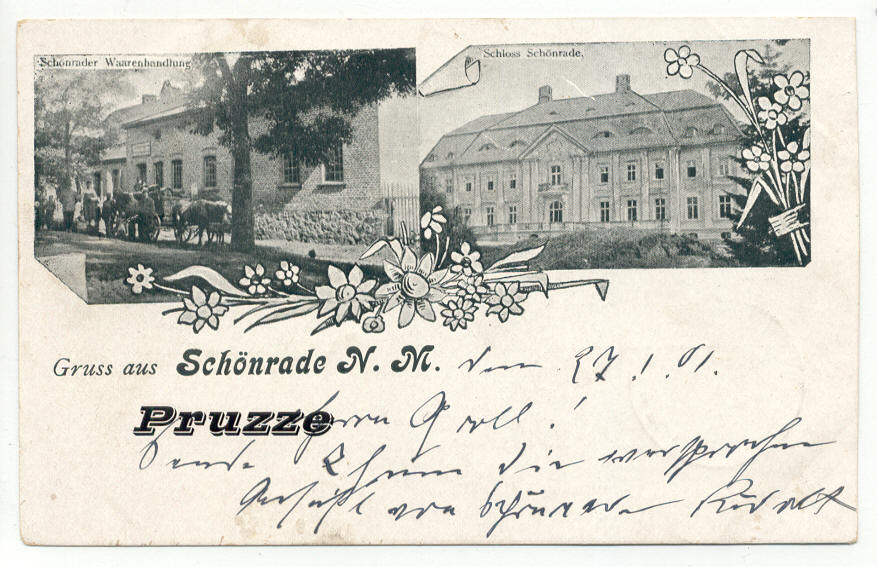 Schönrader Waarenhandlung
Schloss Schönrade.
Gruss aus Schönrade N. M. den 27.1.01.
Pruzze
Herrn Groll!
Sende Ihnen die versprochene
von Schönrade Rudolf